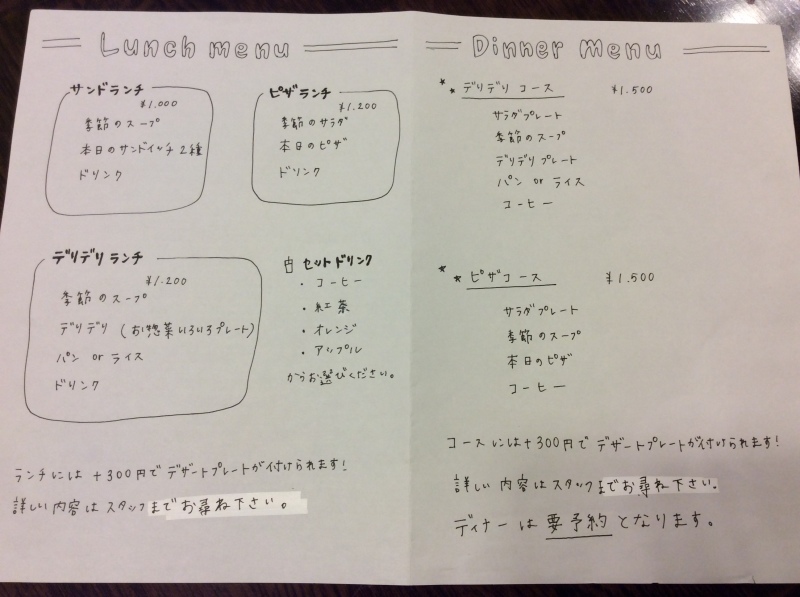 Lunch menu
サンドランチ
¥1.000
季節のスープ
本日のサンドイッチ2種
ドリンク
ピザランチ
¥1.200
季節のサラダ
本日のピザ
ドリンク
デリデリランチ
¥1.200
季節のスープ
デリデリ (お惣菜いろいろプレート)
パン or ライス
ドリンク
セットドリンク
・コーヒー
・紅茶
・オレンジ
・アップル
からお選びください。
ランチには+300円でデザートプレートが付けられます!
詳しい内容はスタッフまでお尋ね下さい。
Dinner menu
デリデリコース ¥1.500
サラダプレート
季節のスープ
デリデリプレート
パン or ライス
コーヒー
ピザコース ¥1.500
サラダプレート
季節のスープ
本日のピザ
コーヒー
コースには+300円でデザートプレートが付けられます!
詳しい内容はスタッフまでお尋ね下さい。
ディナーは要予約となります。